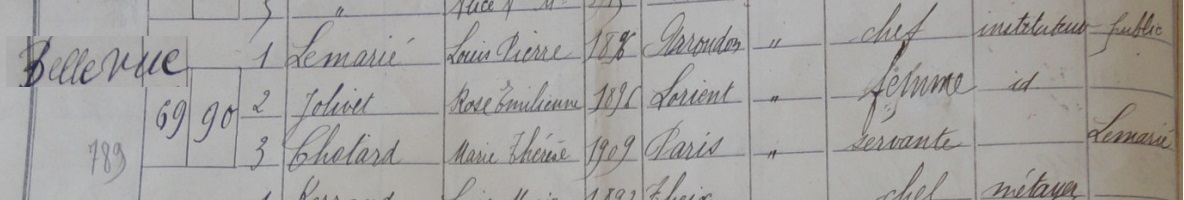 5 "
Bellevue 1 Lemarié Louis Pierre 1896 " chef instituteur public
69 90 2 Jolivet Rose Emilienne 1896 Lorient " femme id
789 3 Cholard Marie Thérèse 1909 Paris " servante Lemarié
1 1892 Theix chef métayer